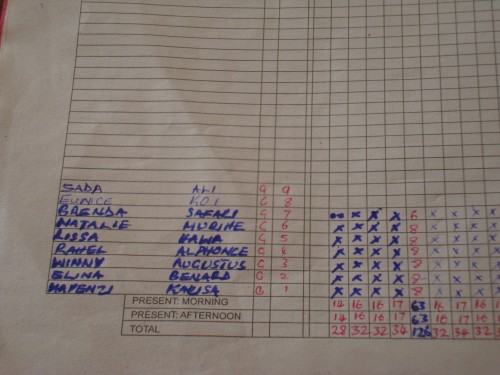 SADA ALI G 9
EUNICE KOI G 8
BRENDA SAFARI G 7 x x x 6 x x x x
NATALIE MURIHE G 6 x x x x 8 x x x x
RISSA HAWA G 5 x x x x 8 x x x x
RAHEL ALPHONCE G 4 x x x x 8 x x x x
WINNY AUGUSTUS G 3 x x x x 8 x x x x
ELINA BENARD G 2 x x x x 8 x x x x
HAPENZI KARISA G 1 x x x x 8 x x x x
PRESENT: MORNING 14 16 16 17 63 16 17 16
PRESENT: AFTERNOON 14 16 16 17 63 16 17 16
TOTAL 28 32 32 34 126 32 34 32